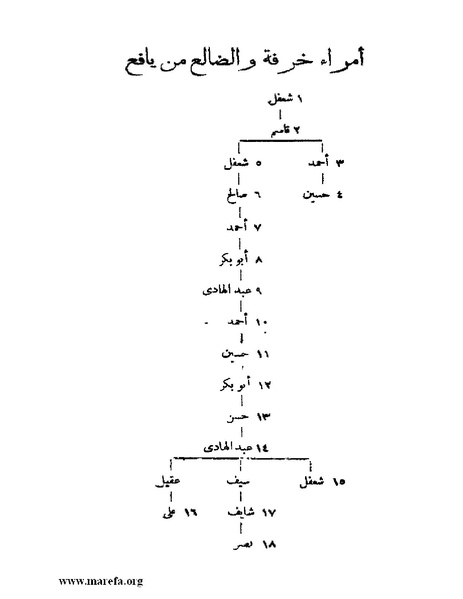 أمراء خرفة والضالع من يافع
١ شعفل
٢ قاسم
٣ أحمد ٥ شعفل
٤ حسين ٦ صالح
٧ أحمد
٨ أبو بكر
٩ عبد الهادى
١٠ أحمد
١١ حسين
١٢ أبو بكر
١٣ حسن
١٤ عبد الهادى
١٥ شعفل سيف عقيل
١٧ شايف ١٦ على
١٨ نصر
www.marefa.org